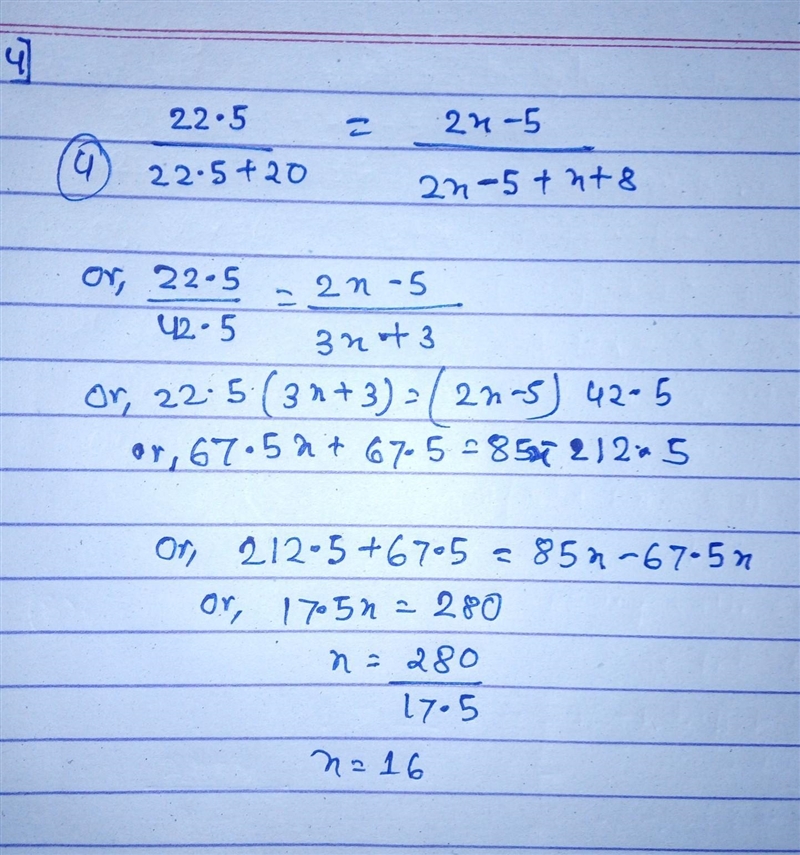 4]
(4) 22.5 / 22.5+20 = 2x-5 / 2x-5+x+8
or, 22.5 / 42.5 = 2x-5 / 3x+3
or, 22.5(3x+3)=(2x-5) 42.5
or, 67.5x + 67.5 = 85x - 212.5
or, 212.5+67.5 = 85x-67.5x
or, 17.5x = 280
x = 280 / 17.5
x = 16